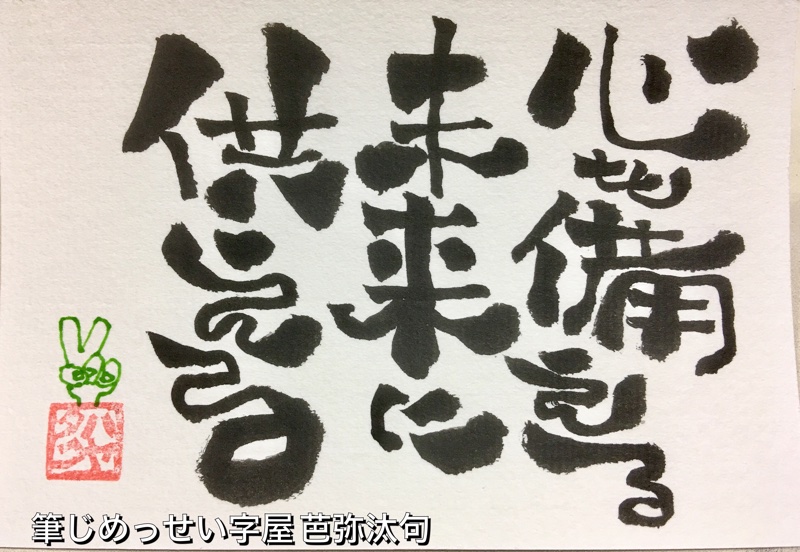 心も備える
未来に
供える
筆じめっせい字屋 芭弥汰句